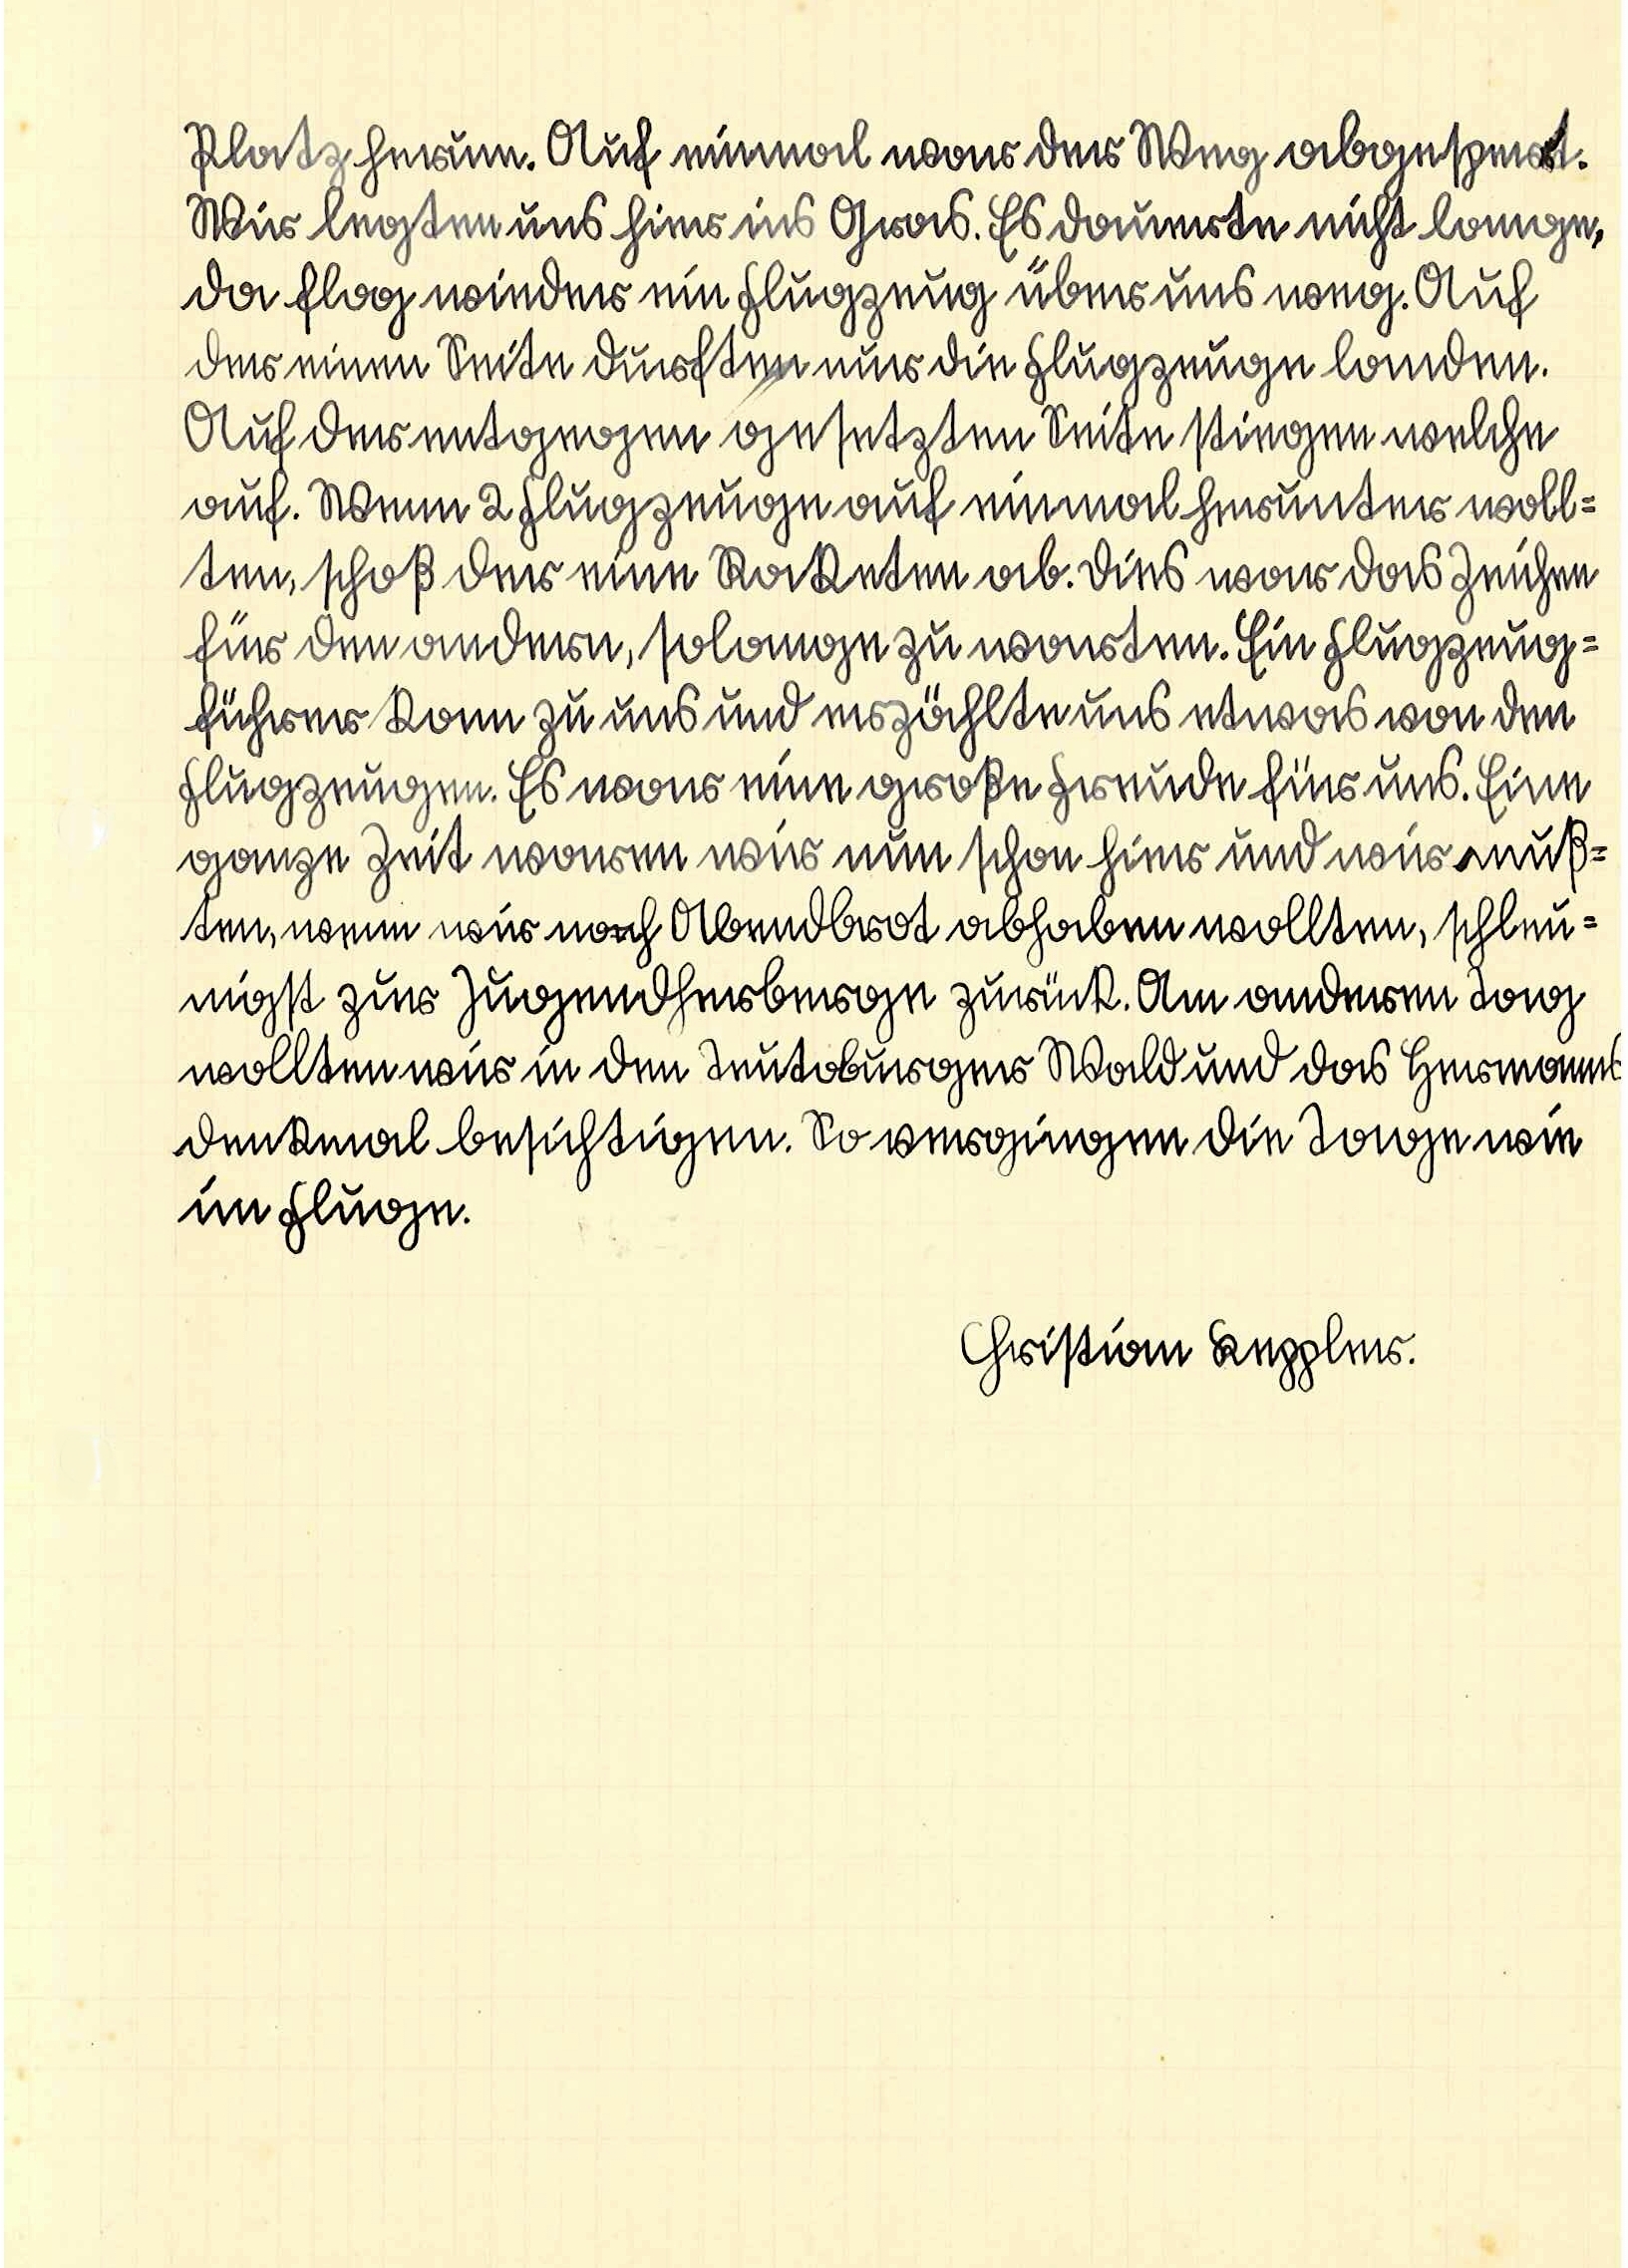 Platz herum. Auf einmal war der Weg abgesperrt.
Wir legten uns hier ins Gras. Es dauerte nicht lange,
da flog wieder ein Flugzeug über uns weg. Auf
der einen Seite durften nur die Flugzeuge landen.
Auf der entgegen gesetzten Seite stiegen welche
auf. Wenn 2 Flugzeuge auf einmal herunter woll=
ten, schoß der eine Raketen ab. Dies war das Zeichen
für den andern, solange zu warten. Ein Flugzeug=
führer kam zu uns und erzählte uns etwas von den
Flugzeugen. Es war eine große Freude für uns. Eine
ganze Zeit waren wir nun schon hier und wir muß=
ten, wenn wir noch Abendbrot abhaben wollten, schleu=
nigst zur Jugendherberge zurück. Am anderen Tag
wollten wir in den Teutoburger Wald und das Hermanns
denkmal besichtigen. So vergingen die Tage wie
im Fluge.
Christian Keppler.